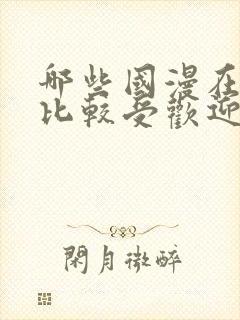 哪些國漫在
比較受歡迎
閑月微醉